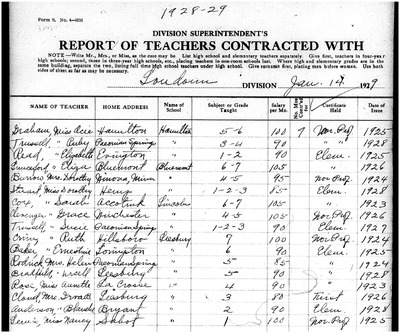 1928-29
Form S, No. 4-
DIVISION SUPERINTENDENT'S
REPORT OF TEACHERS CONTRACTED WITH
NOTE—Write Mr., Mrs., or Miss, as the case may be. List high school and elementary teachers separately. Give first, teachers in four-year
high schools; second, those in three-year high schools, etc., placing teachers in one-room schools last. Where high and elementary grades are in the
same building, separate the two, listing full time high school teachers under high school. Give surname first, placing men before women. Use both
sides of sheet as far as may be necessary.
Loudoun DIVISION Jan. 14, 1929
NAME OF TEACHER HOME ADDRESS Name of School Subject or Grade Taught Salary per Mo. No. Mos. Certificate Held Date of Issue
Graham, Miss Acie Hamilton Hamilton 5-6 100 9 Nor. Prof. 1925
Trussell, " Ruby Paeonian Springs " 3-4 90 " " 1928
Read, " Elizabeth Evington " 1-2 90 Elem. 1925
" Eliza Bluemont Bluemont 6-7 105 " 1922
Mrs. Dorothy " 4-5 95 Nor. Prof. 1924
Stuart, Miss Dorothy " 1-2-3 85 Elem. 1928
Cox, " Sarah Accotink Lincoln 6-7 105 " 1923
" Grace Winchester " 4-5 105 Nor. Prof. 1926
Trussell, " Susie Paeonian Springs " 1-2-3 90 Elem. 1927
" Ruth Hillsboro Leesburg 7 100 Nor. Prof. 1924
Baker, " Ernestine Lovington " 6 90 Elem. 1925
Mrs. Helen Paeonian Springs " 5 85 " 1924
Leesburg " 5 90 " 1928
Rose, Miss Annette La Crosse " 4 90 " 1923
Cloud, Mrs. Leesburg " 3 80 First 1926
Anderson, " Blanche Bryant " 2 90 Elem. 1928
Lewis, Miss Nancy " 1 100 Nor. Prof. 1925